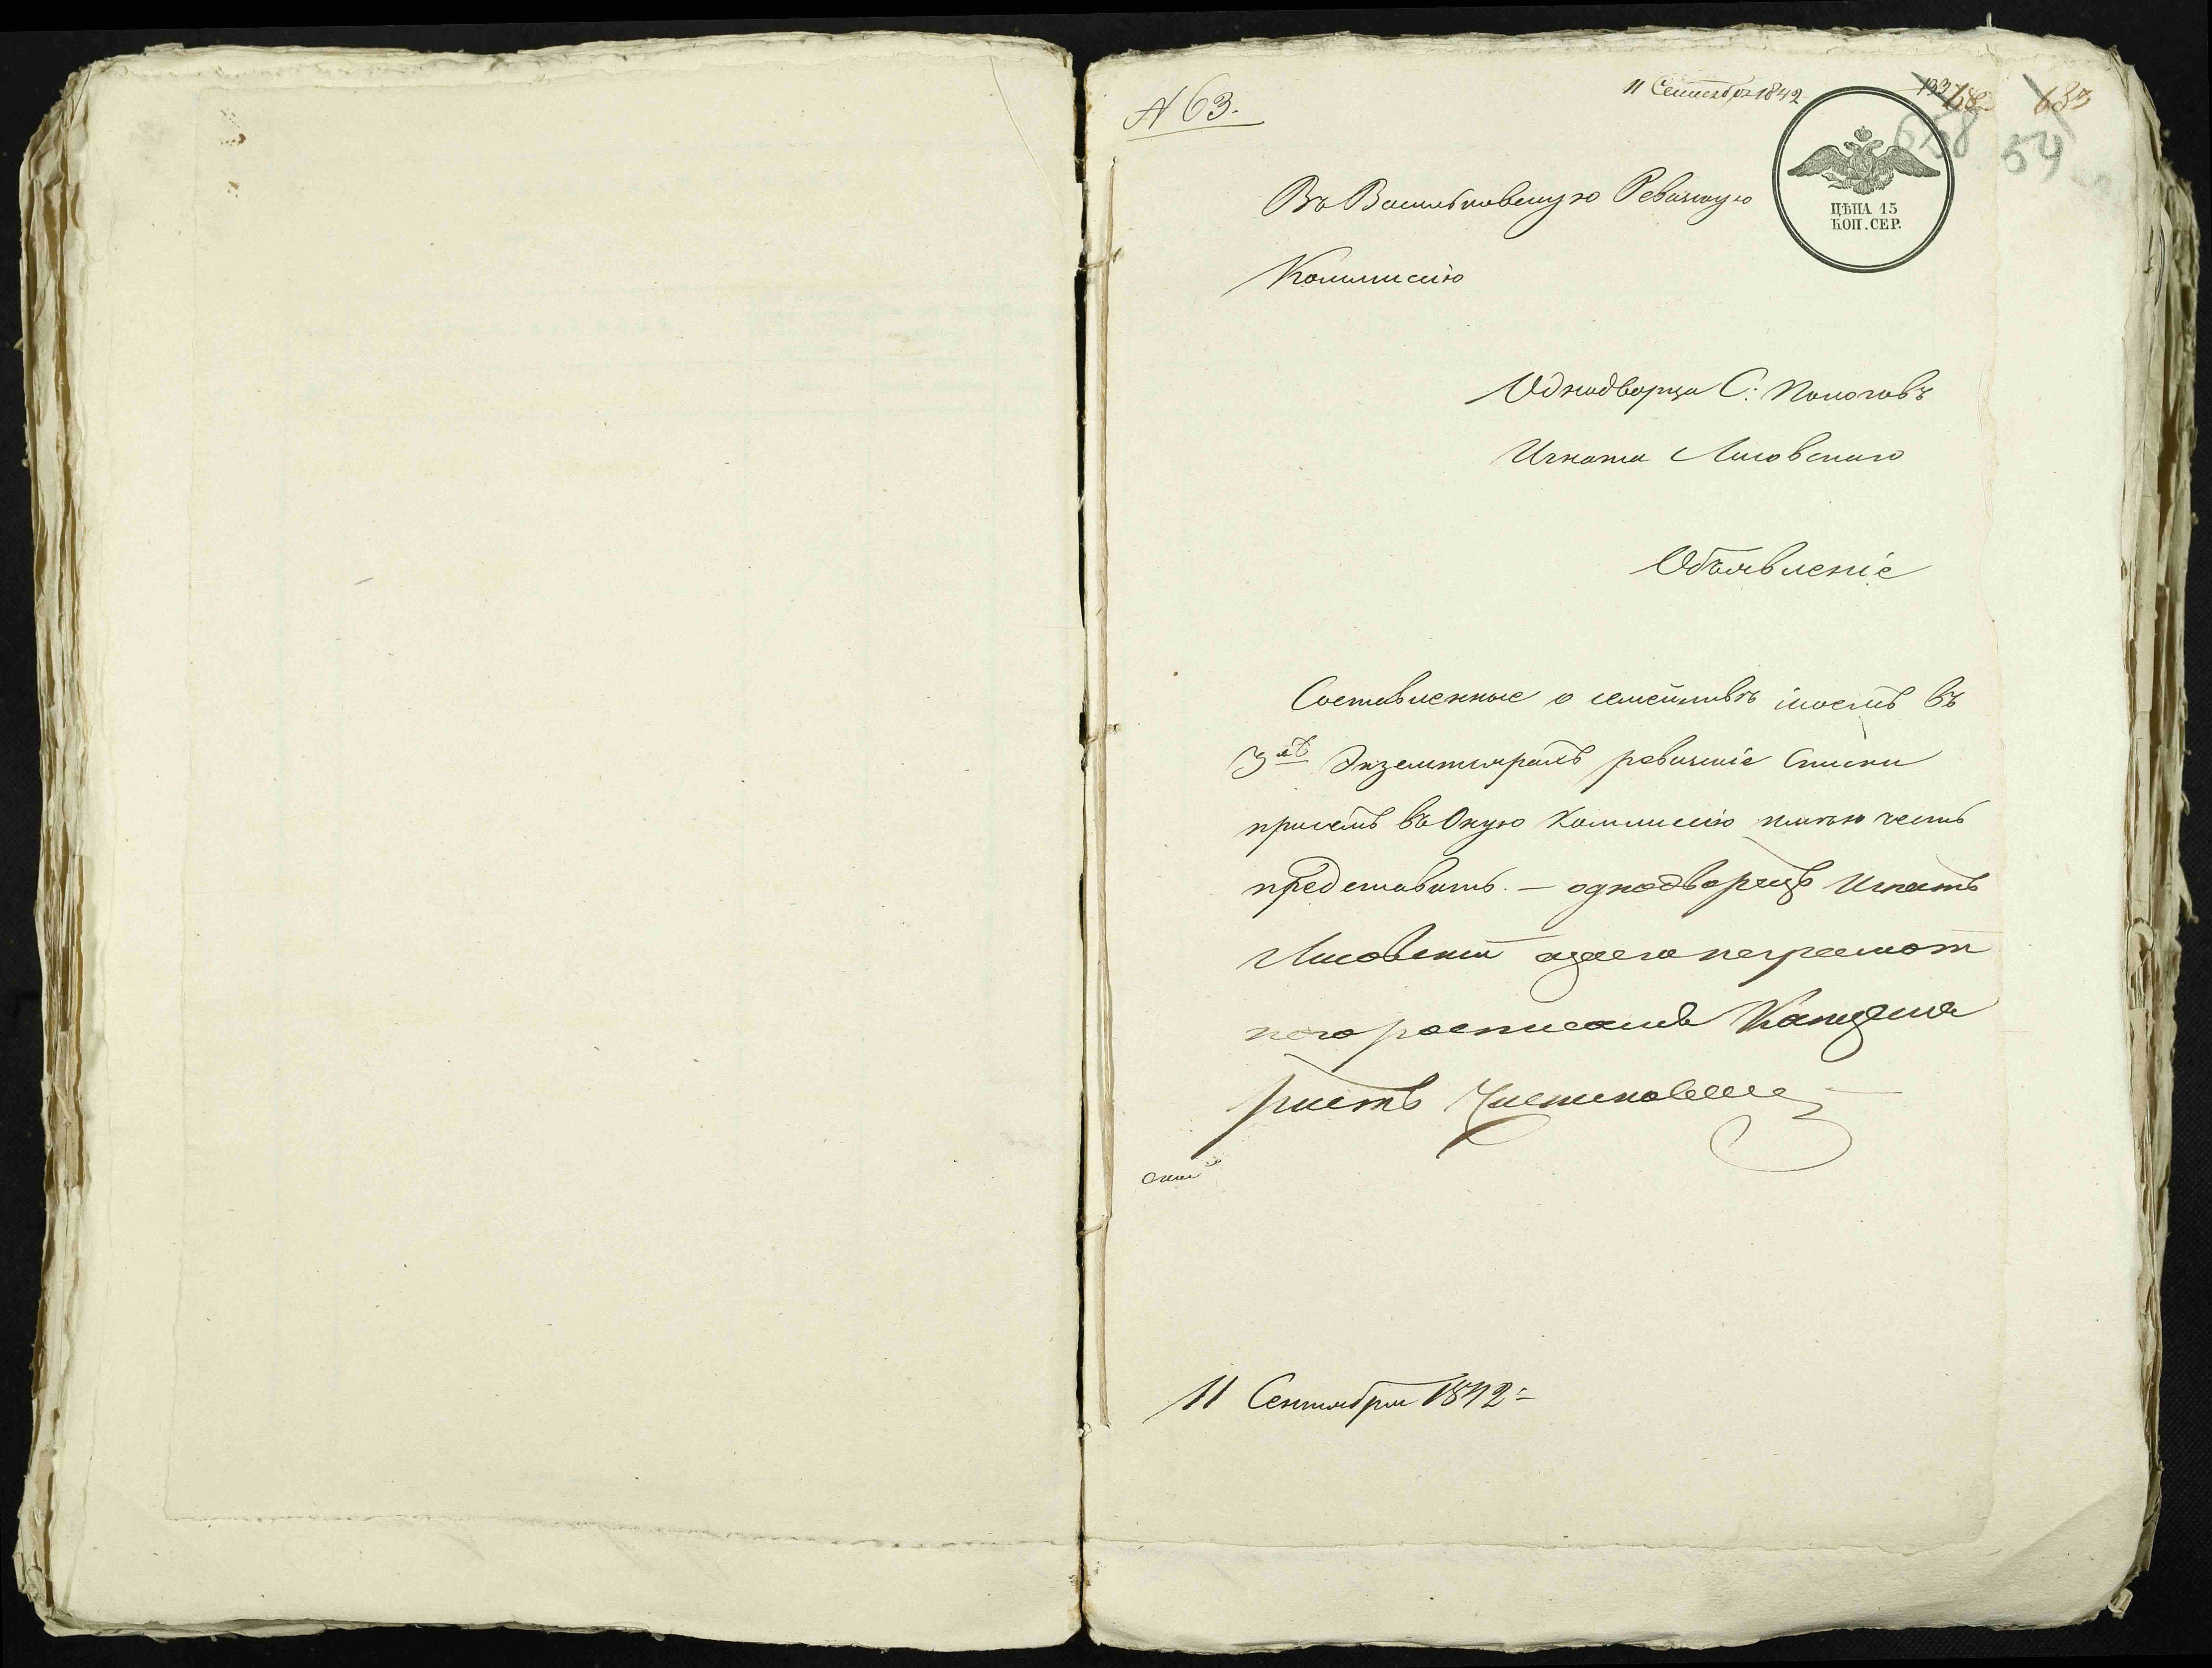 № 63.
11 Сентября 1842
683
658 54
ЦѢНА 15
КОП. СЕР.
Въ Васильковскую Ревизкую
Коммисiю
Однодворца С: Пологовъ
Игната Лисовскаго
Объявленiе
Составленные о семействѣ моемъ въ
3хъ Экземплярахъ ревизкiе Списки
присемъ въ Оную Коммисiю имѣю честь
представить. — однодворецъ Игнатъ
Лисовский азаего неграмот
ного росписался Канцеля
ристъ
11 Сентября 1842: